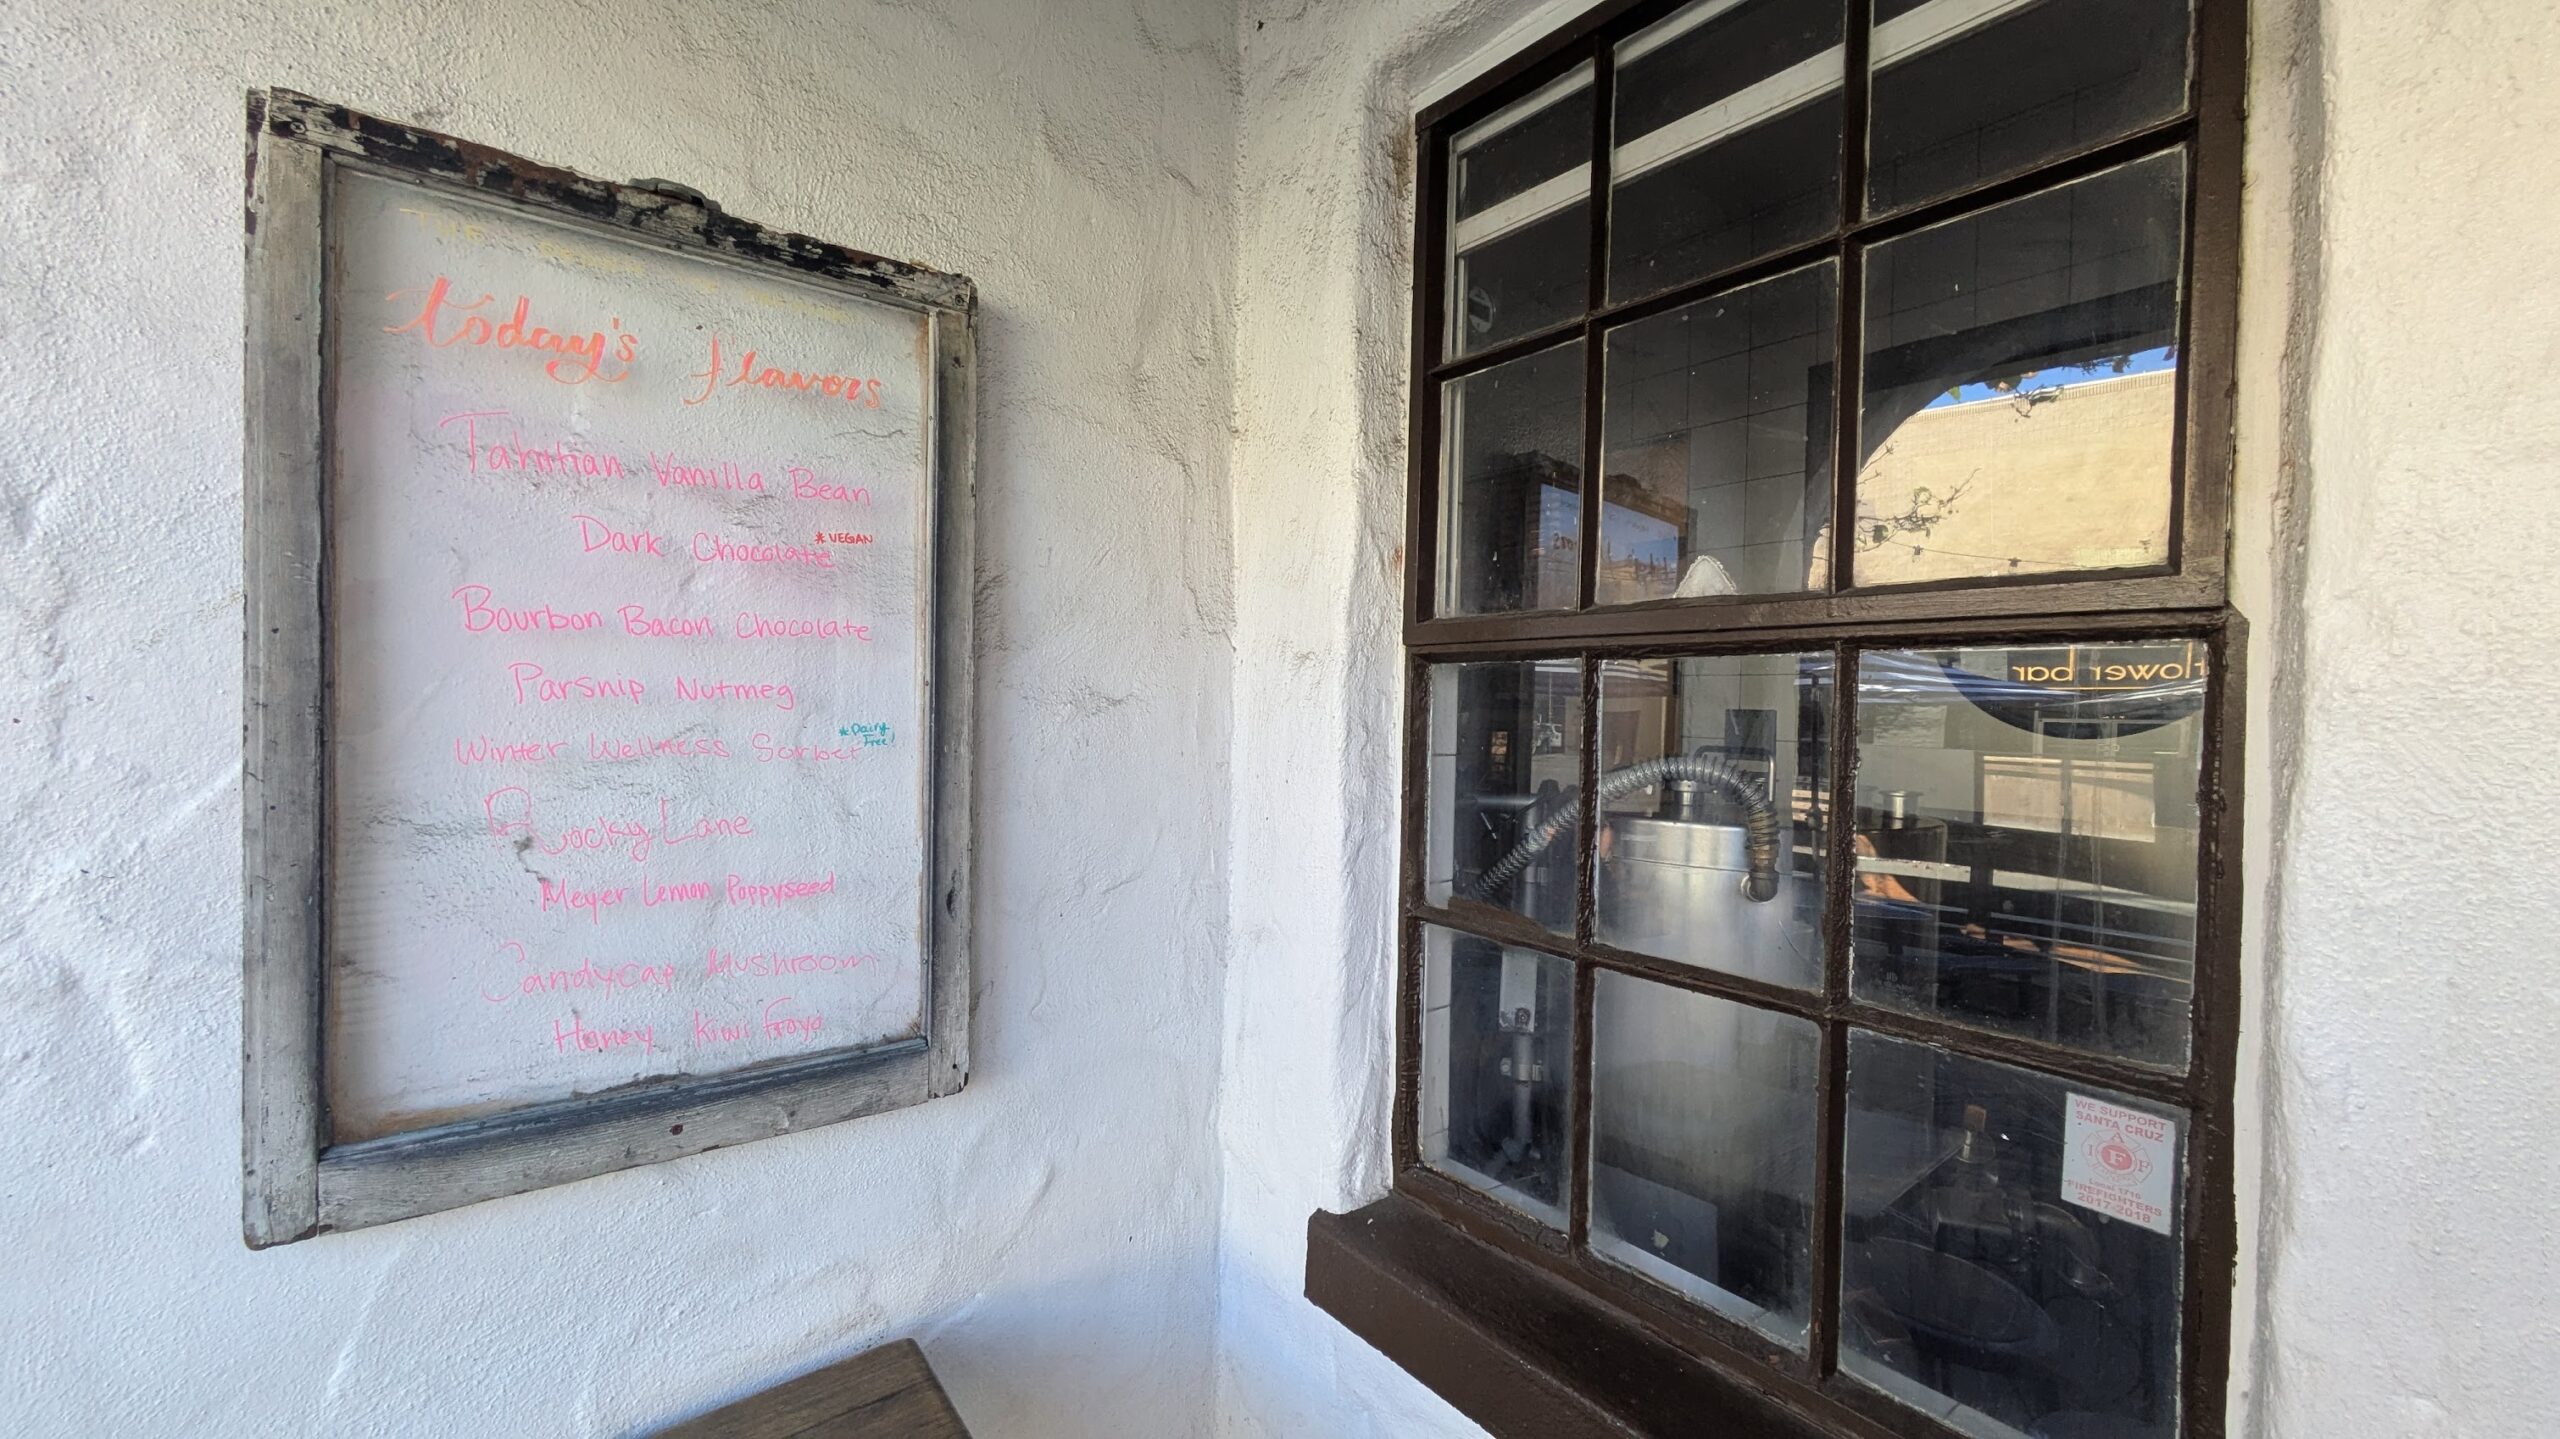 THE
today's flavors
Tahitian Vanilla Bean
Dark Chocolate *VEGAN
Bourbon Bacon Chocolate
Parsnip Nutmeg
Winter Wellness Sorbet *Dairy Free!
Rocky Lane
Meyer Lemon Poppyseed
Candycap Mushroom
Honey Kiwi Froyo
flower bar
WE SUPPORT
SANTA CRUZ
I A F F
Local 1716
FIREFIGHTERS
2017-2018